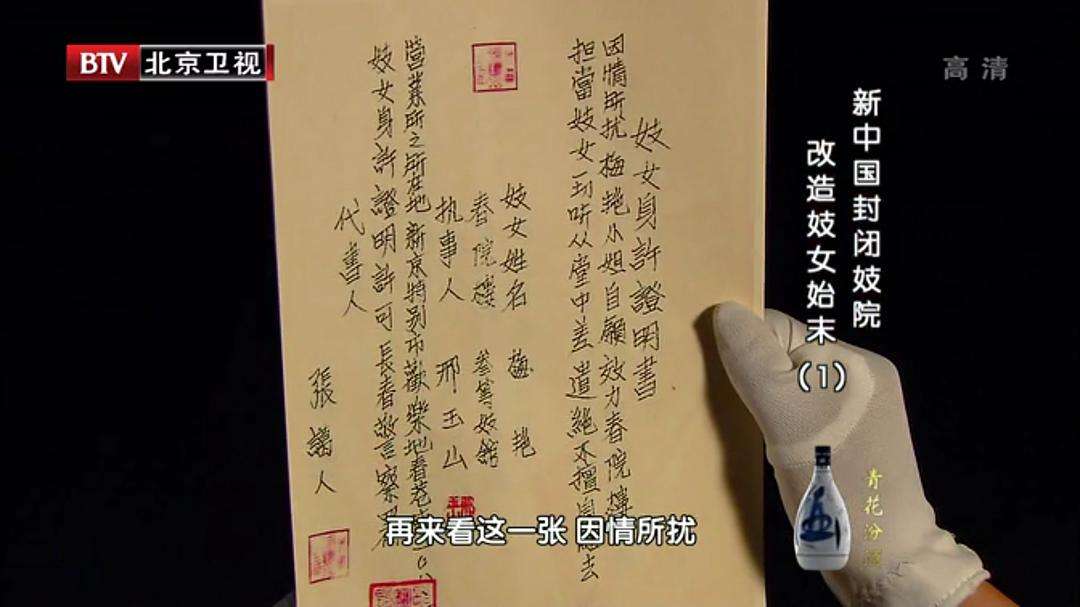 BTV 北京卫视
高清
新中国封闭妓院
改造妓女始末
(1)
妓女身許證明書
因情所扰梅艳小姐自願效力春院樓
担當妓女一切听从堂中差遣絕不擅自
去
妓女姓名 梅艳
春院樓 叁等妓館
执事人 邢玉山
營業所之所在地新京特别市歡樂地春花
妓女身許證明許可長春警察
代書人 張
人
再来看这一张 因情所扰
青花汾酒